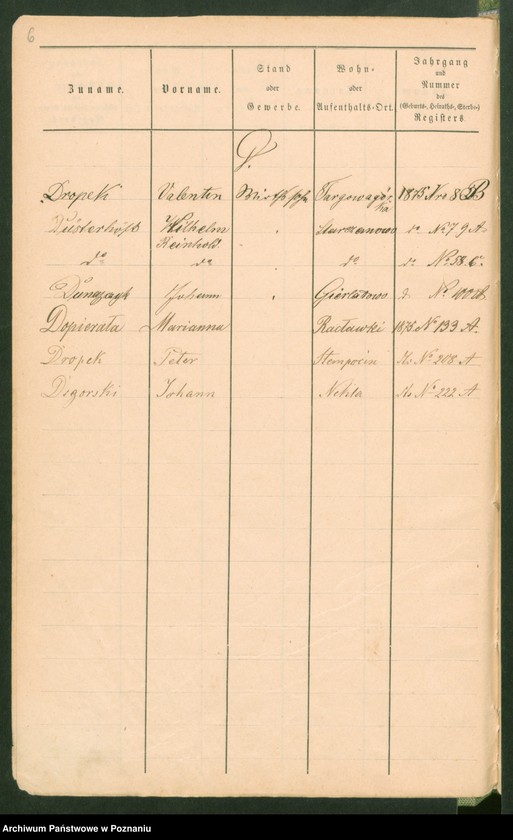 6
Zuname. Vorname. Stand oder Gewerbe. Wohn- oder Aufenthalts-Ort. Jahrgang und Nummer des (Geburts-, Heiraths-, Sterbe-) Registers.
D.
Dropek Valentin Targowagór- ka 1875 Nro 8 B
Düsterhöft Wilhelm do No 79 A
Reinhold
do do do do No 58 C.
Johann Gierlatowo No 100 A
Dopierała Marianna Racławki 1875 No 133 A.
Dropek Peter Stempocin No 208 A
Dsgorski Johann Nekla No 222 A
Archiwum Państwowe w Poznaniu